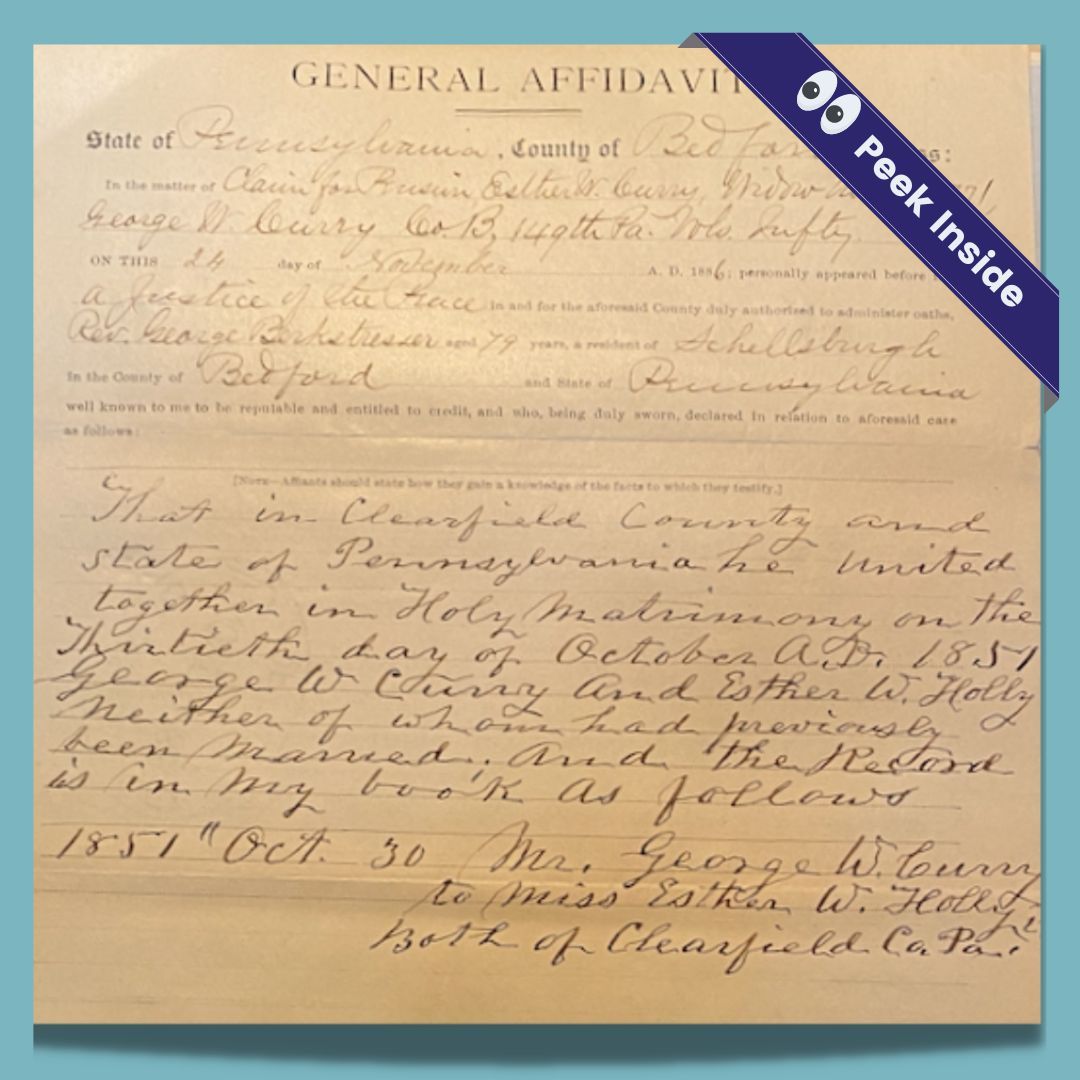 GENERAL AFFIDAVIT
Peek Inside
State of Pennsylvania, County of Bedford ss:
In the matter of Claim for Esther W. Curry, Widow
George W. Curry Co. B, 149th Pa. Vols. Infty.
ON THIS 24 day of November A. D. 1886; personally appeared before
a Justice of the Peace in and for the aforesaid County duly authorized to administer oaths,
Rev. George Berkstresser aged 79 years, a resident of Schellsburgh
in the County of Bedford and State of Pennsylvania
well known to me to be reputable and entitled to credit, and who, being duly sworn, declared in relation to aforesaid case
as follows:
[Note—Affiants should state how they gain a knowledge of the facts to which they testify.]
That in Clearfield County and
state of Pennsylvania he united
together in Holy Matrimony on the
Thirtieth day of October A.D. 1851
George W Curry And Esther W. Holly
Neither of whom had previously
been Married. And the Record
is in my book As follows
1851 "Oct. 30 Mr. George W. Curry
to Miss Esther W. Holly
Both of Clearfield Co. Pa."